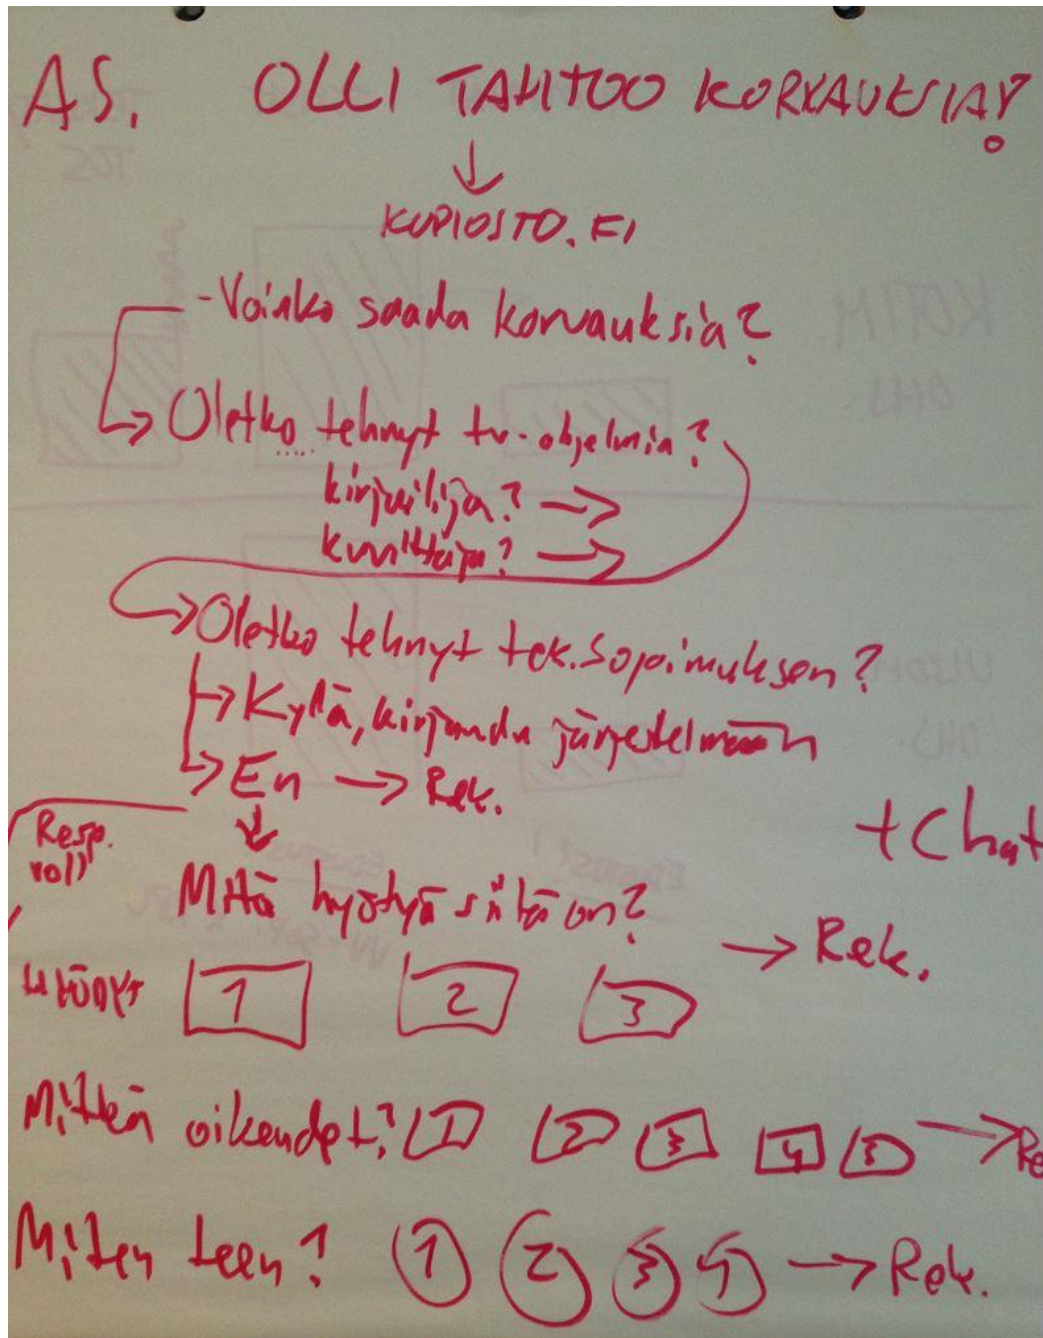 A.S. OLLI TAHTOO KORVAUKSIA!
KOPIOSTO.FI
- Voinko saada korvauksia?
Oletko tehnyt tv-ohjelmia?
kirjailija?
kuvittaja?
Oletko tehnyt tek.sopimuksen?
Kyllä, kirjaudu järjestelmään
En → Rek.
+ Chat
Resp.
Mitä hyötyä siitä on?
→ Rek.
HYÖDYT 1 2 3
Mitkä oikeudet? 1 2 3 4 5 → Re
Miten teen? 1 2 3 4 → Rek.